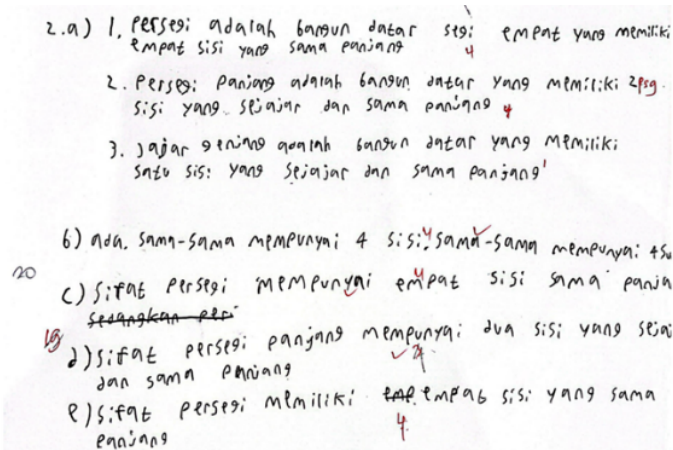 2.a) 1. persegi adalah bangun datar segi empat yang memiliki
empat sisi yang sama panjang
4
2. Persegi Panjang adalah bangun datar yang memiliki 2 psg
sisi yang sejajar dan sama panjang 4
3. Jajar genjang adalah bangun datar yang memiliki
satu sisi yang sejajar dan sama panjang 1
b) ada. sama-sama mempunyai 4 sisi, 4 sama-sama mempunyai 4 su
20
c) Sifat Persegi mempunyai empat sisi sama panja
4
sedangkan per
19
d) Sifat persegi panjang mempunyai dua sisi yang seja
dan sama panjang
4
e) Sifat persegi memiliki emp empat sisi yang sama
panjang
4.